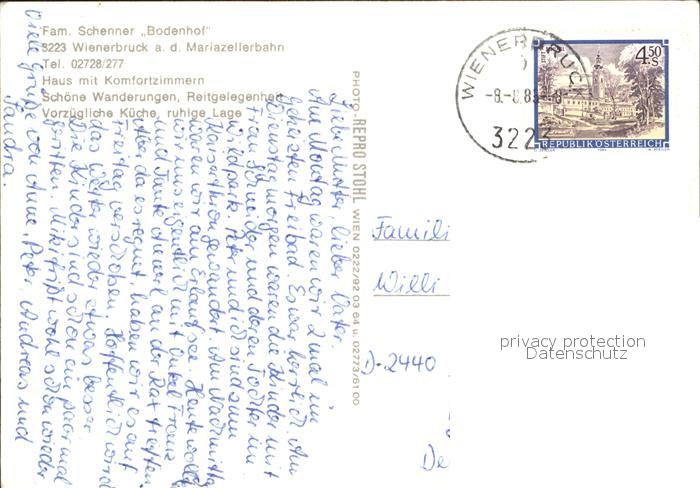 Fam. Schenner „Bodenhof"
3223 Wienerbruck a. d. Mariazellerbahn
Tel. 02728/277
Haus mit Komfortzimmern
Schöne Wanderungen, Reitgelegenheit
Vorzügliche Küche, ruhige Lage
PHOTO-REPRO STOHL WIEN 0222/92 03 64 u. 02773/61 00
WIENERBRUCK
-8.-8.85
3223
4.50 S
REPUBLIK ÖSTERREICH
Liebe Mutter, lieber Vater
Am Montag waren wir 2 mal im
Freibad. Es war herrlich. Am
Dienstag morgen waren die Kinder mit
Frau Schneider und deren Tochter im
Wildpark. Peter und ich sind zum
gewandert. Am Nachmittag
waren wir am Erlaufsee. Heute wollten
wir uns eigentlich mit Onkel Franz
und Tante an der Rax treffen
aber da es regnet, haben wir es auf
Freitag verschoben. Hoffentlich wird
das Wetter wieder etwas besser.
Die Kinder sind schon ein paarmal
geritten. wohl schon wieder.
Viele Grüße von Anne, Peter, Andreas und
Sandra.
Famili
Willi
D-2440
De
privacy protection
Datenschutz